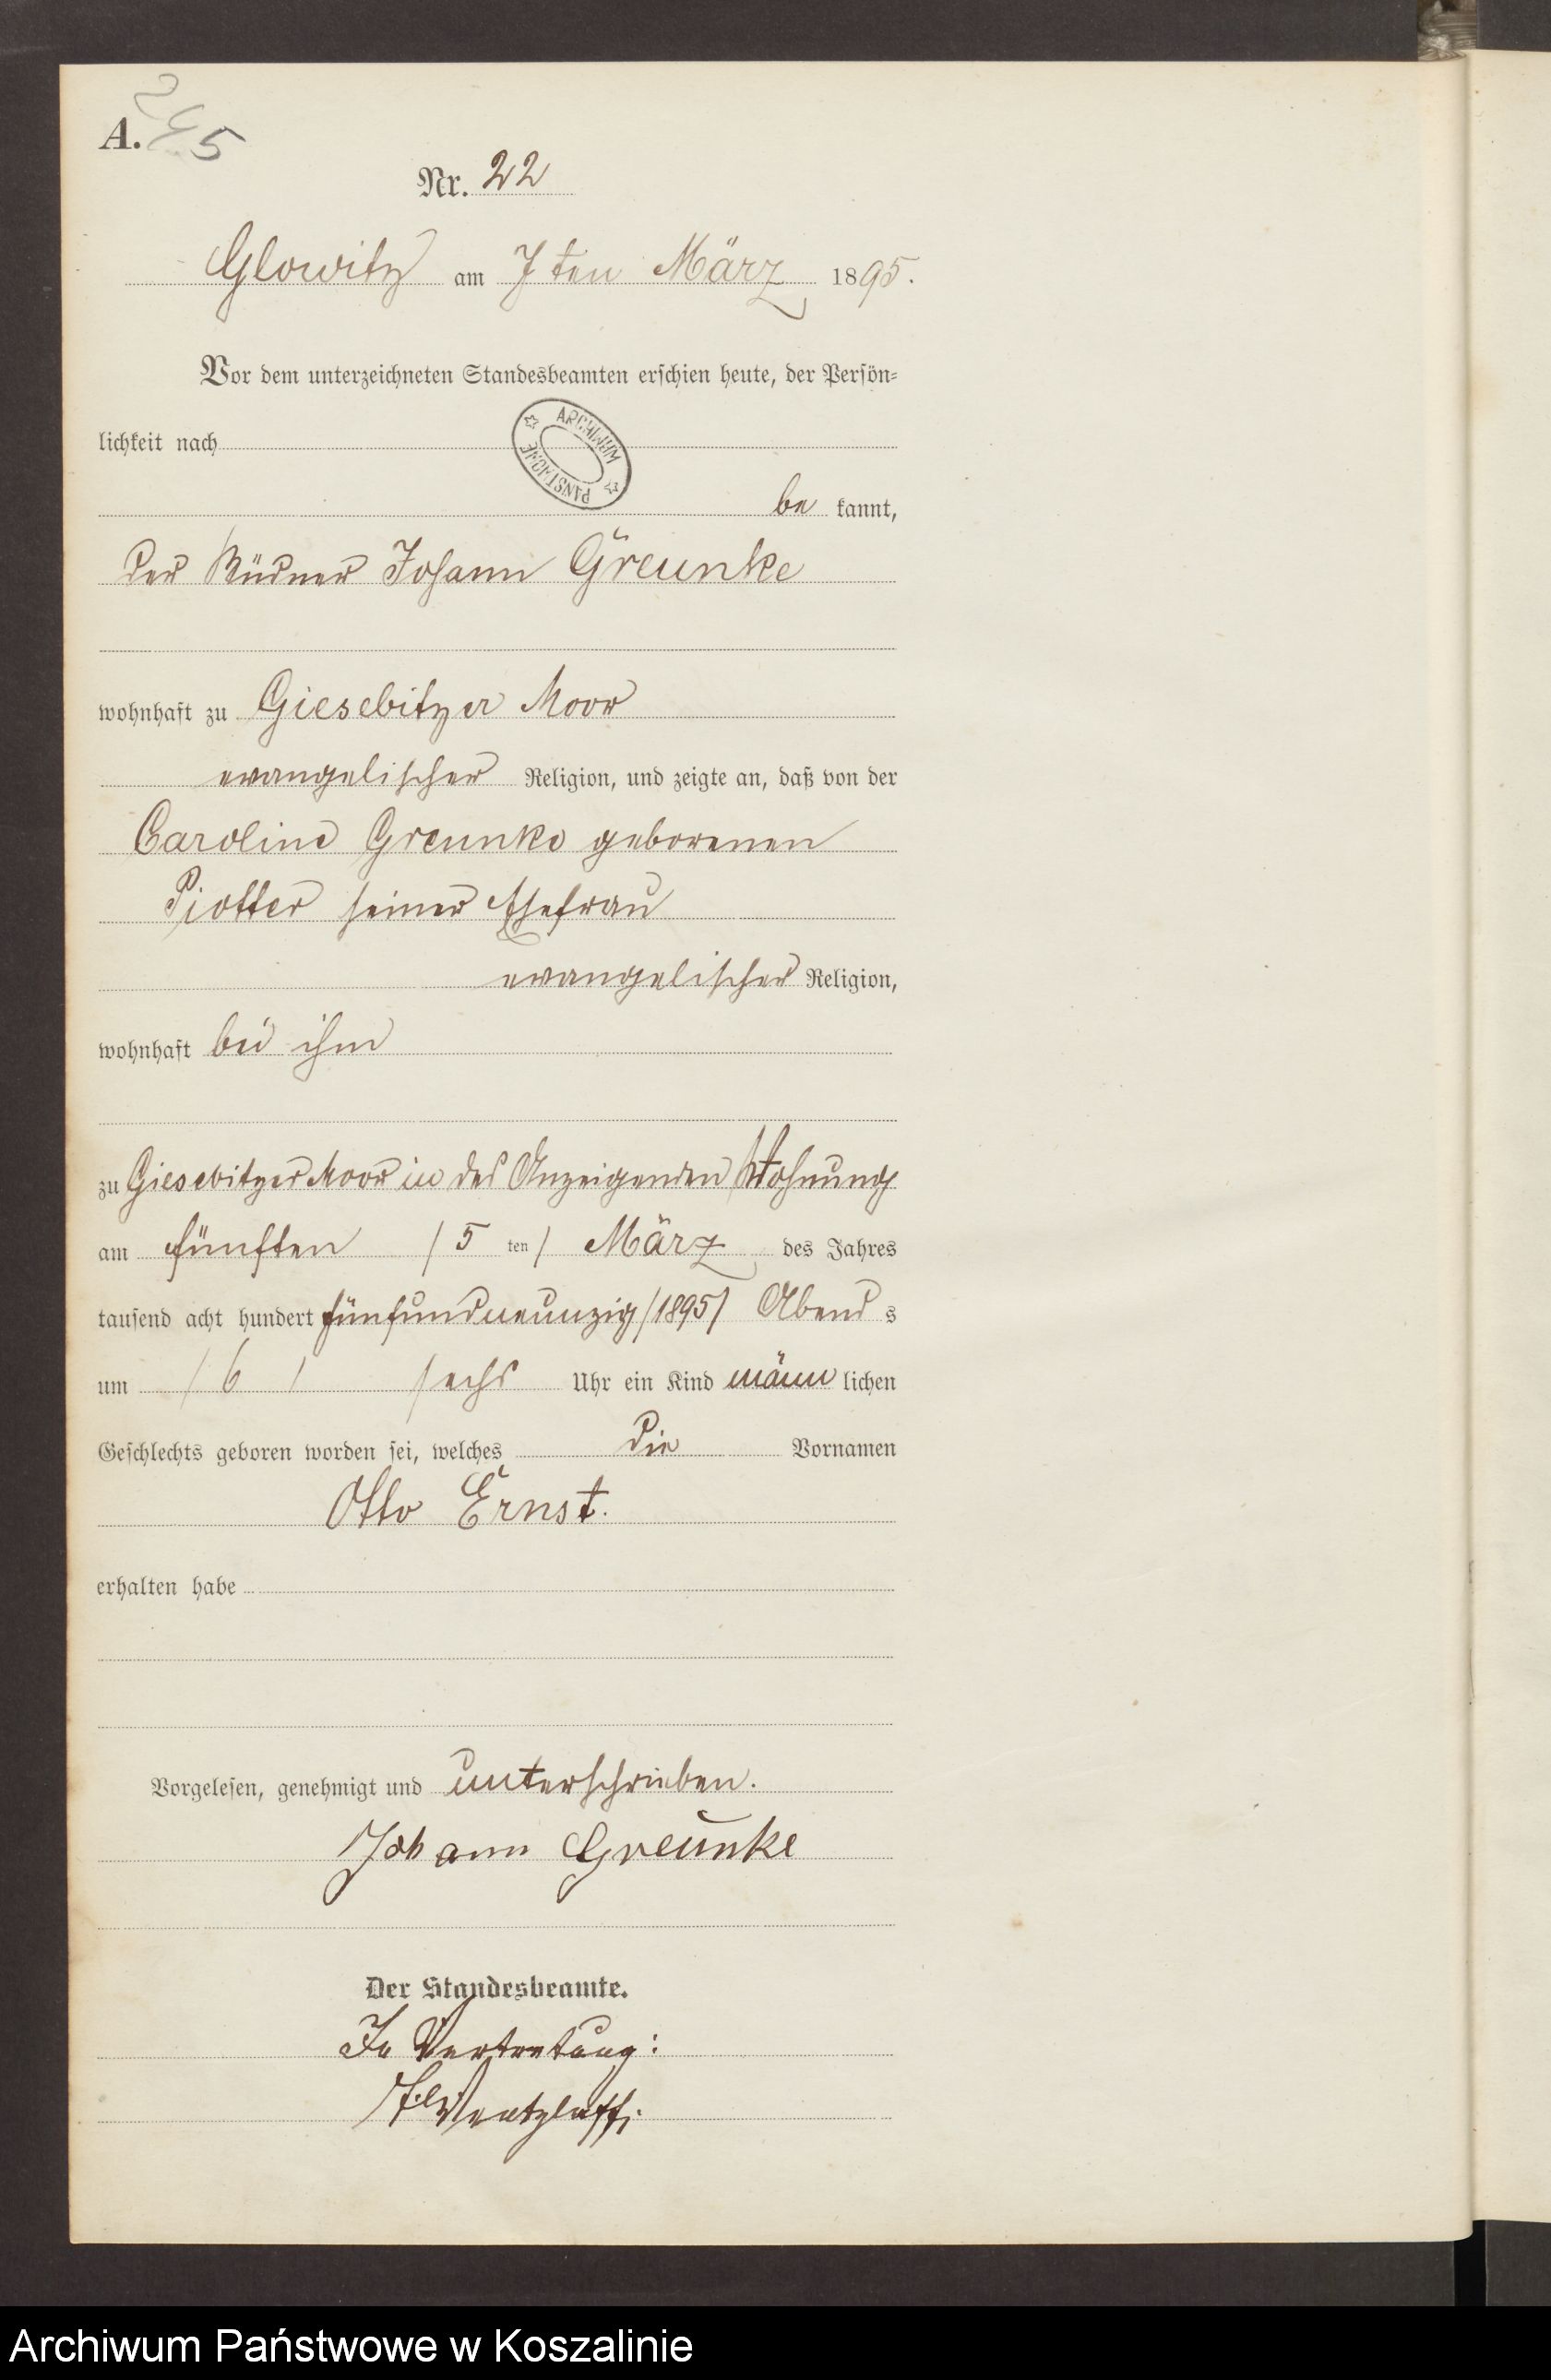 A.
25
Nr. 22
Glowitz am 7ten März 1895.
Vor dem unterzeichneten Standesbeamten erschien heute, der Persön-
lichkeit nach
ARCHIWUM PAŃSTWOWE
be kannt,
der Büdner Johann Greunke
wohnhaft zu Giesebitzer Moor
evangelischer Religion, und zeigte an, daß von der
Caroline Greunke geborenen
Piotter seiner Ehefrau
evangelischer Religion,
wohnhaft bei ihm
zu Giesebitzer Moor in des Anzeigenden Wohnung
am fünften /5 ten/ März des Jahres
tausend acht hundert fünfundneunzig /1895/ Abend s
um /6/ sechs Uhr ein Kind männ lichen
Geschlechts geboren worden sei, welches die Vornamen
Otto Ernst.
erhalten habe
Vorgelesen, genehmigt und unterschrieben.
Johann Greunke
Der Standesbeamte.
In Vertretung:
Wentzlaff.
Archiwum Państwowe w Koszalinie